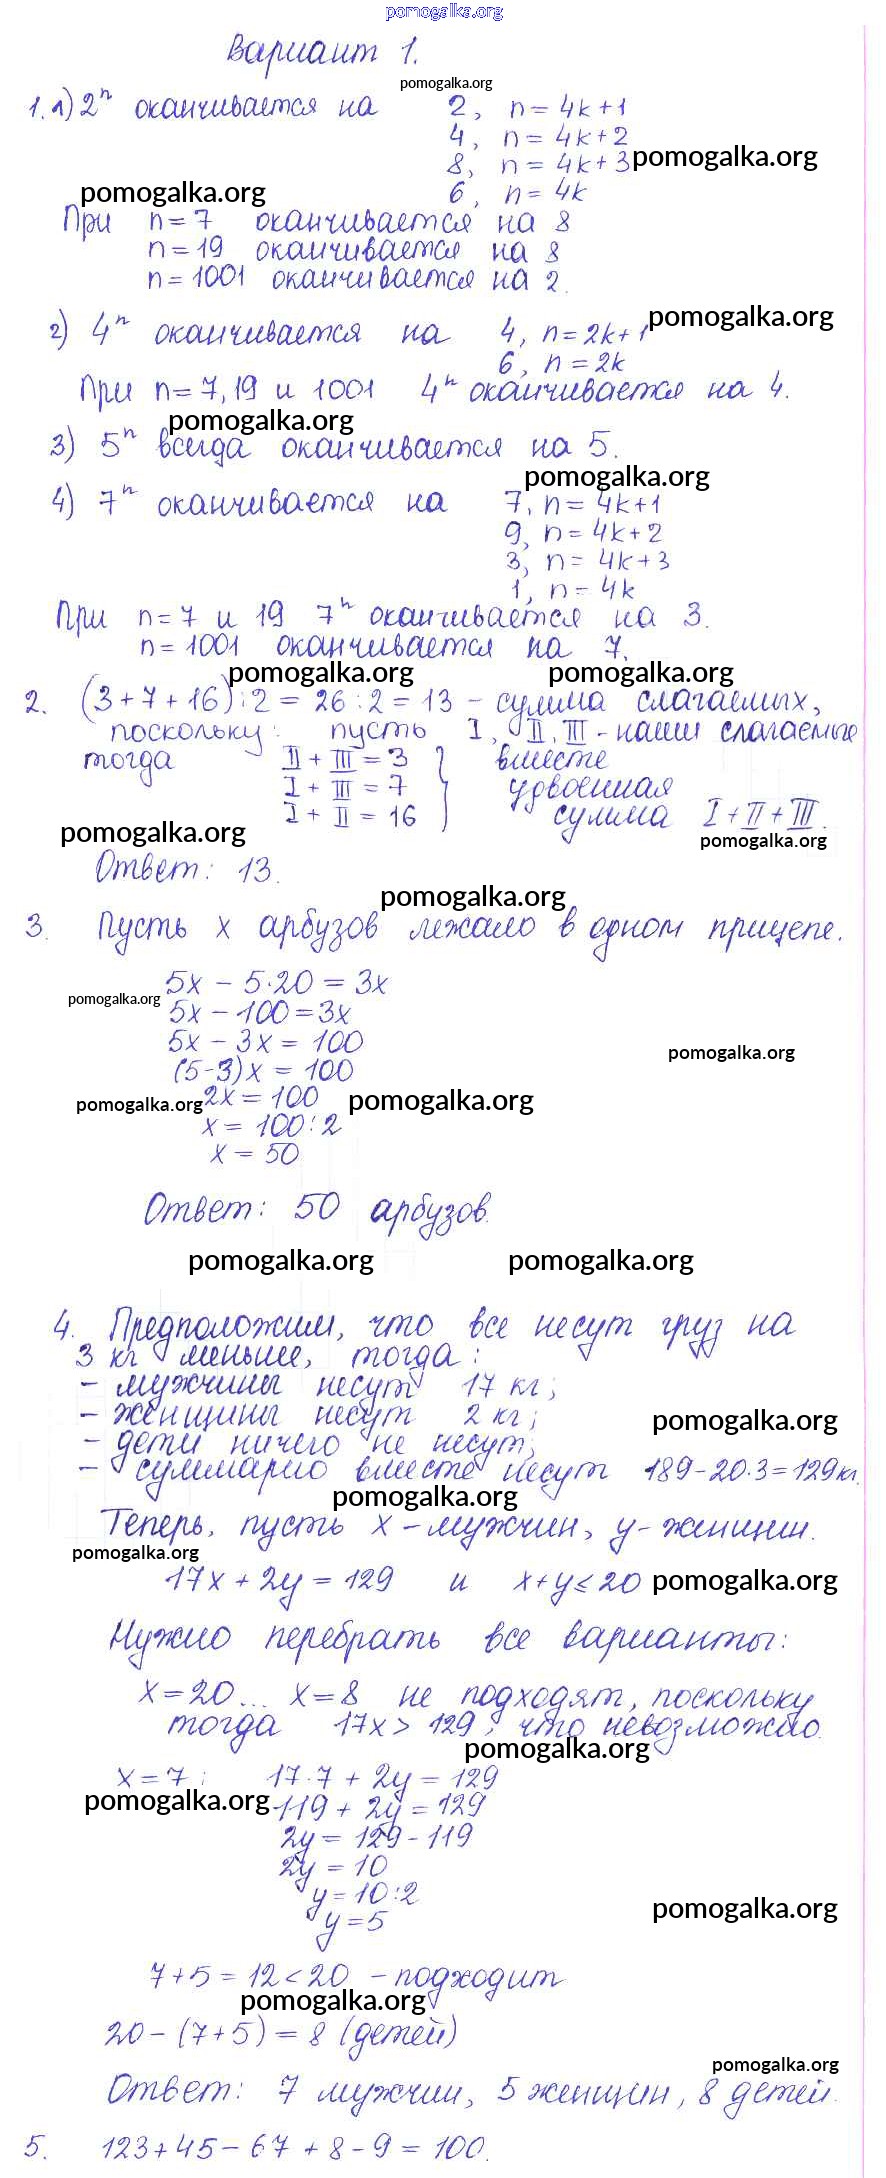 pomogalka.org
Вариант 1.
pomogalka.org
1. 1) 2ⁿ оканчивается на 2, n = 4k+1
4, n = 4k+2
8, n = 4k+3 pomogalka.org
pomogalka.org 6, n = 4k
При n = 7 оканчивается на 8
n = 19 оканчивается на 8
n = 1001 оканчивается на 2.
2) 4ⁿ оканчивается на 4, n = 2k+1 pomogalka.org
6, n = 2k
При n = 7, 19 и 1001 4ⁿ оканчивается на 4.
pomogalka.org
3) 5ⁿ всегда оканчивается на 5.
pomogalka.org
4) 7ⁿ оканчивается на 7, n = 4k+1
9, n = 4k+2
3, n = 4k+3
1, n = 4k
При n = 7 и 19 7ⁿ оканчивается на 3.
n = 1001 оканчивается на 7.
pomogalka.org pomogalka.org
2. (3+7+16):2 = 26:2 = 13 - сумма слагаемых,
поскольку: пусть I, II, III - наши слагаемые
тогда II + III = 3 } вместе
I + III = 7 удвоенная
I + II = 16 сумма I + II + III.
pomogalka.org pomogalka.org
Ответ: 13.
pomogalka.org
3. Пусть x арбузов лежало в одном прицепе.
5x - 5·20 = 3x
pomogalka.org 5x - 100 = 3x
5x - 3x = 100
pomogalka.org
(5-3)x = 100
pomogalka.org 2x = 100 pomogalka.org
x = 100:2
x = 50
Ответ: 50 арбузов.
pomogalka.org pomogalka.org
4. Предположим, что все несут груз на
3 кг меньше, тогда:
- мужчины несут 17 кг;
- женщины несут 2 кг; pomogalka.org
- дети ничего не несут;
- суммарно вместе несут 189-20·3=129кг.
pomogalka.org
Теперь, пусть x - мужчин, y - женщин.
pomogalka.org
17x + 2y = 129 и x+y ≤ 20 pomogalka.org
Нужно перебрать все варианты:
x=20... x=8 не подходят, поскольку
тогда 17x > 129, что невозможно.
pomogalka.org
x = 7: 17·7 + 2y = 129
pomogalka.org 119 + 2y = 129
2y = 129 - 119
2y = 10
y = 10:2
pomogalka.org
y = 5
7+5 = 12 < 20 - подходит
pomogalka.org
20 - (7+5) = 8 (детей)
pomogalka.org
Ответ: 7 мужчин, 5 женщин, 8 детей.
5. 123+45-67+8-9 = 100.